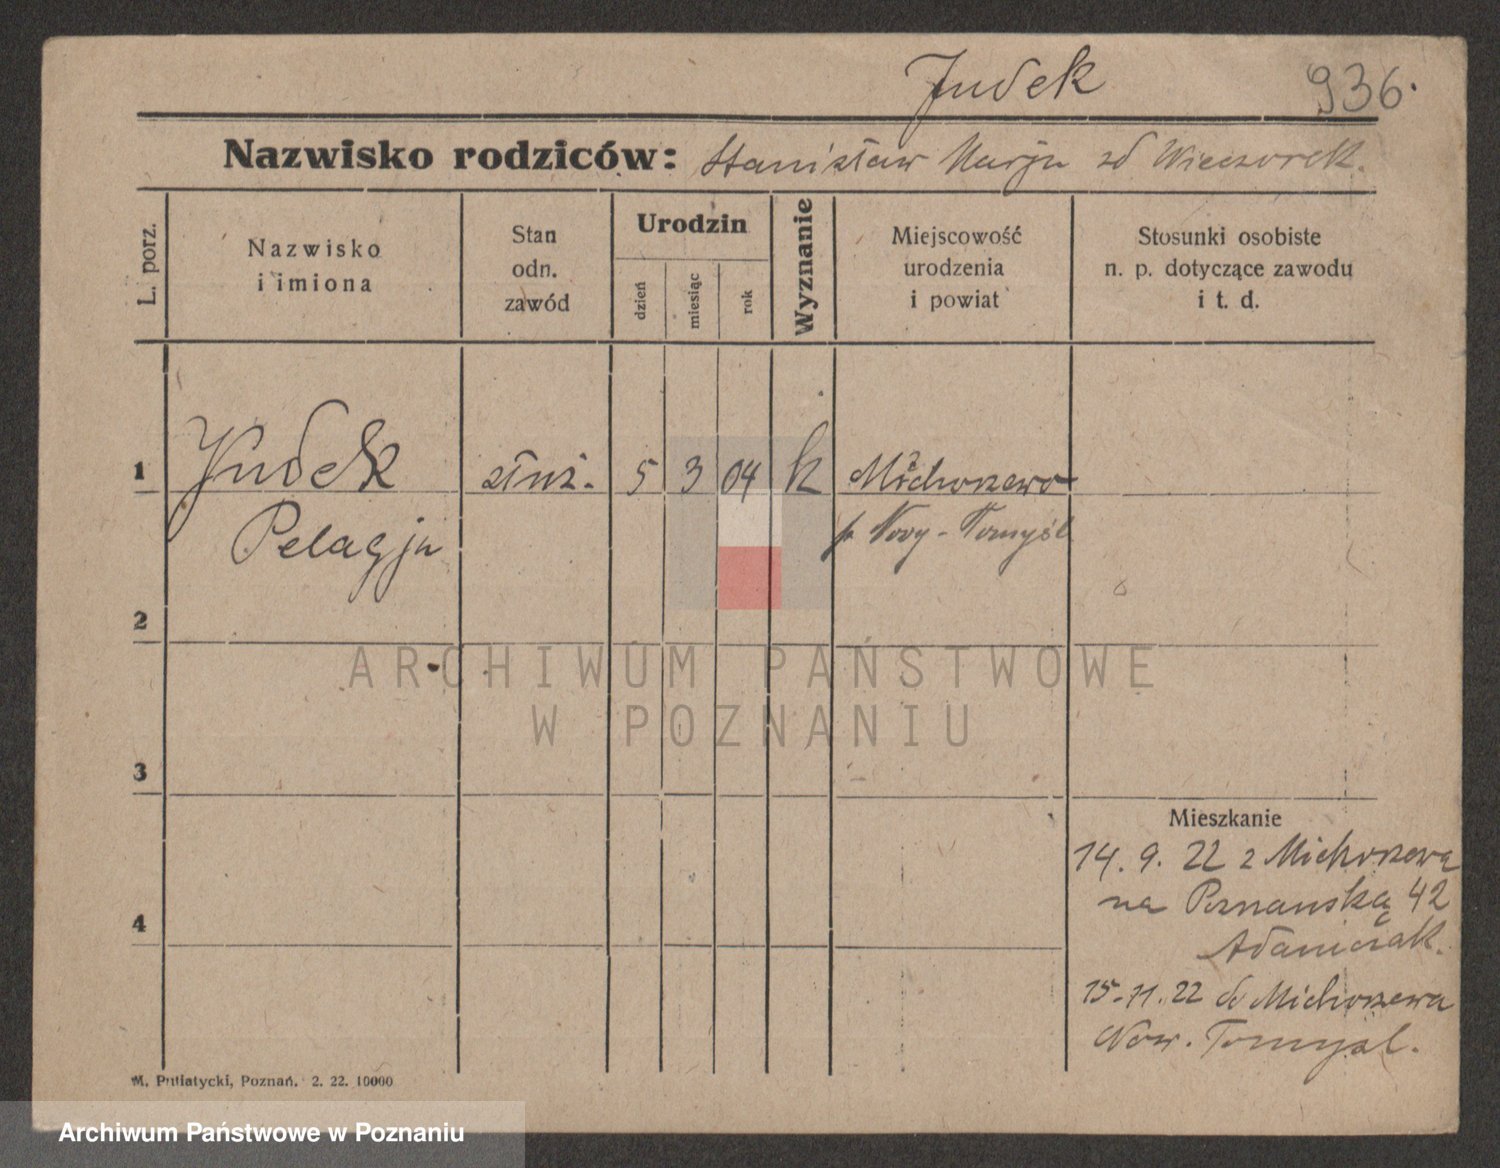 Judek 936.
Nazwisko rodziców: Stanisław Marja zd Wieczorek.
L. porz.
Nazwisko
i imiona
Stan
odn.
zawód
Urodzin
dzień
miesiąc
rok
Wyznanie
Miejscowość
urodzenia
i powiat
Stosunki osobiste
n. p. dotyczące zawodu
i t. d.
1 Judek służ. 5 3 04 k Michorzewo
Pelagja p. Nowy-Tomyśl
2
ARCHIWUM PAŃSTWOWE
W POZNANIU
3
Mieszkanie
14. 9. 22 z Michorzewa
na Poznańską 42
4
Adamczak.
15-11.22 do Michorzewa
Now. Tomyśl.
M. Putiatycki, Poznań. 2. 22. 10000
Archiwum Państwowe w Poznaniu